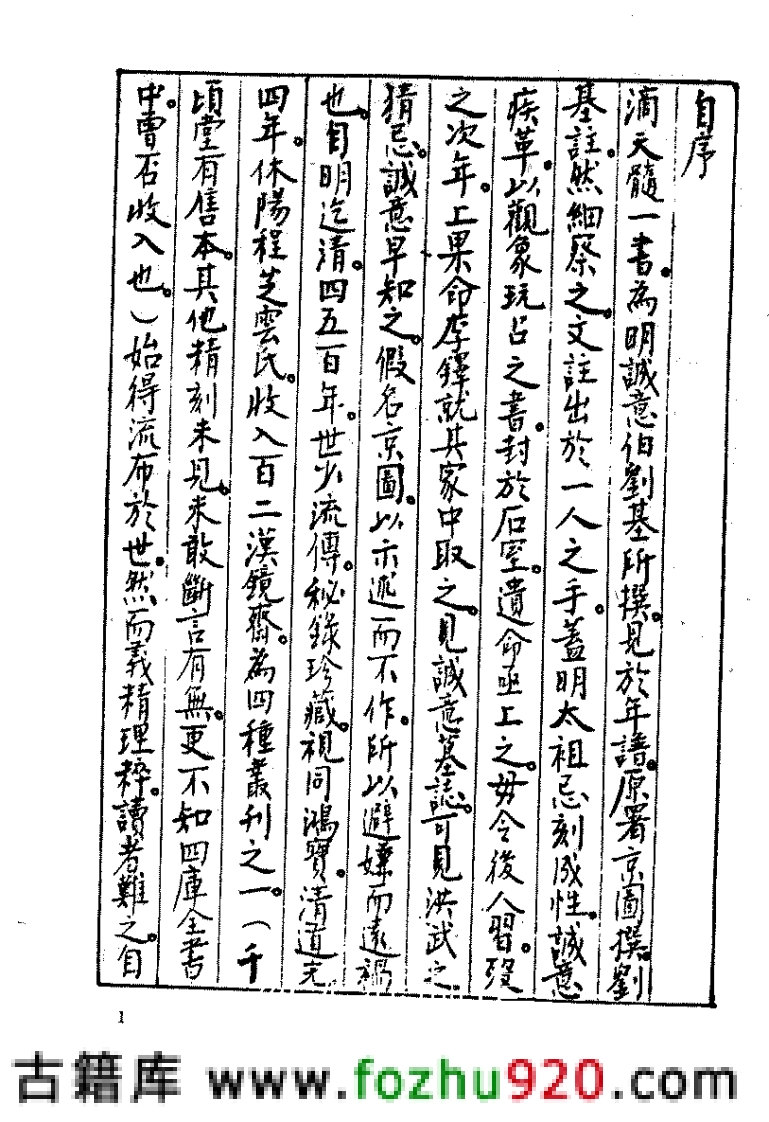 自序
滴天髓一書。為明誠意伯劉基所撰。見於年譜。原署京圖撰。劉
基註。然細察之。文註出於一人之手。蓋明太祖忌刻成性。誠意
疾革。以觀象玩占之書。封於石室。遺命亟上之。毋令後人習。歿
之次年。上果命李鐸就其家中取之。見誠意墓誌。可見洪武之
猜忌。誠意早知之。假名京圖。以示述而不作。所以避嫌而遠禍
也。自明迄清。四五百年。世少流傳。秘錄珍藏。視同鴻寶。清道光
四年。休陽程芝雲氏。收入百二漢鏡齋。為四種叢刊之一。(千
頃堂有售本。其他精刻未見。未敢斷言有無。更不知四庫全書
中。曹否收入也。)始得流布於世。然而義精理粹。讀者難之。自
1
古籍库 www.fozhu920.com